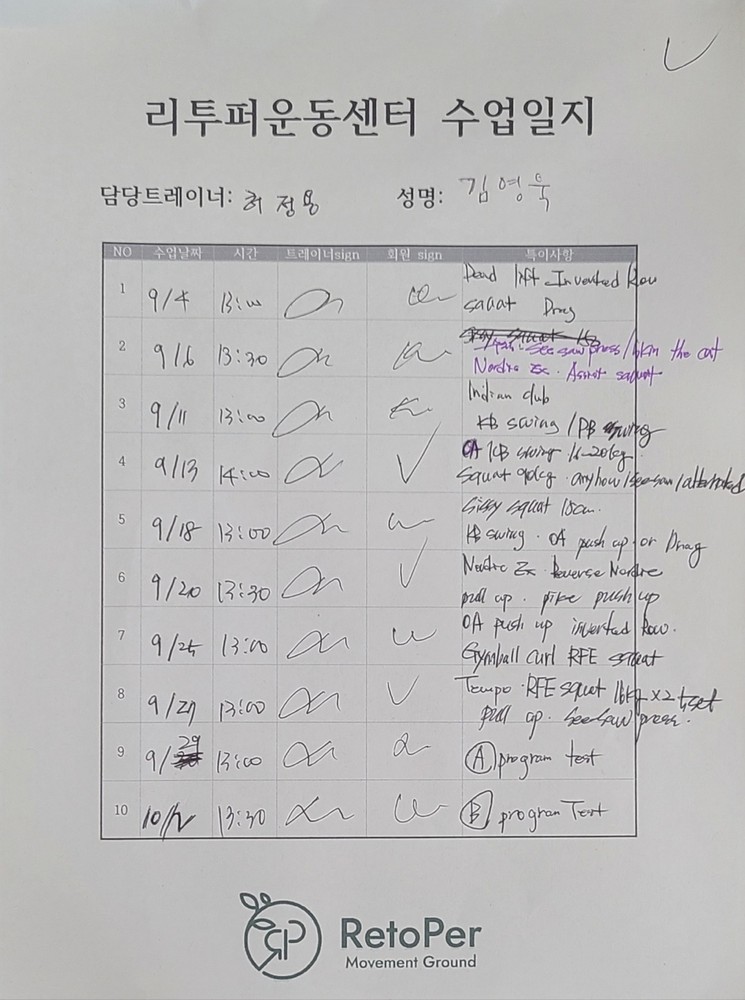 리투퍼운동센터 수업일지
담당트레이너: 허정용 성명: 김영욱
NO 수업날짜 시간 트레이너sign 회원 sign 특이사항
1 9/4 13:00 Dead lift Inverted Row
squat Drag
2 9/6 13:30 See saw press / the cat
Nordic Ex. Assist squat
3 9/11 13:00 Indian club
KB swing / DB swing
4 9/13 14:00 OA KB swing 16-20kg
Squat 90kg. anyhow / see-saw /
5 9/18 13:00 Sissy squat 10cm.
KB swing. OA push up or Drag
6 9/20 13:30 Nordic Ex. Reverse Nordic
pull up. pike push up
7 9/25 13:00 OA push up inverted Row.
Gymball curl RFE squat
8 9/27 13:00 Tempo. RFE squat 16kg x2 set
pull up. seesaw press.
9 9/29 13:00 A program test
10 10/2 13:30 B program Test
RetoPer
Movement Ground